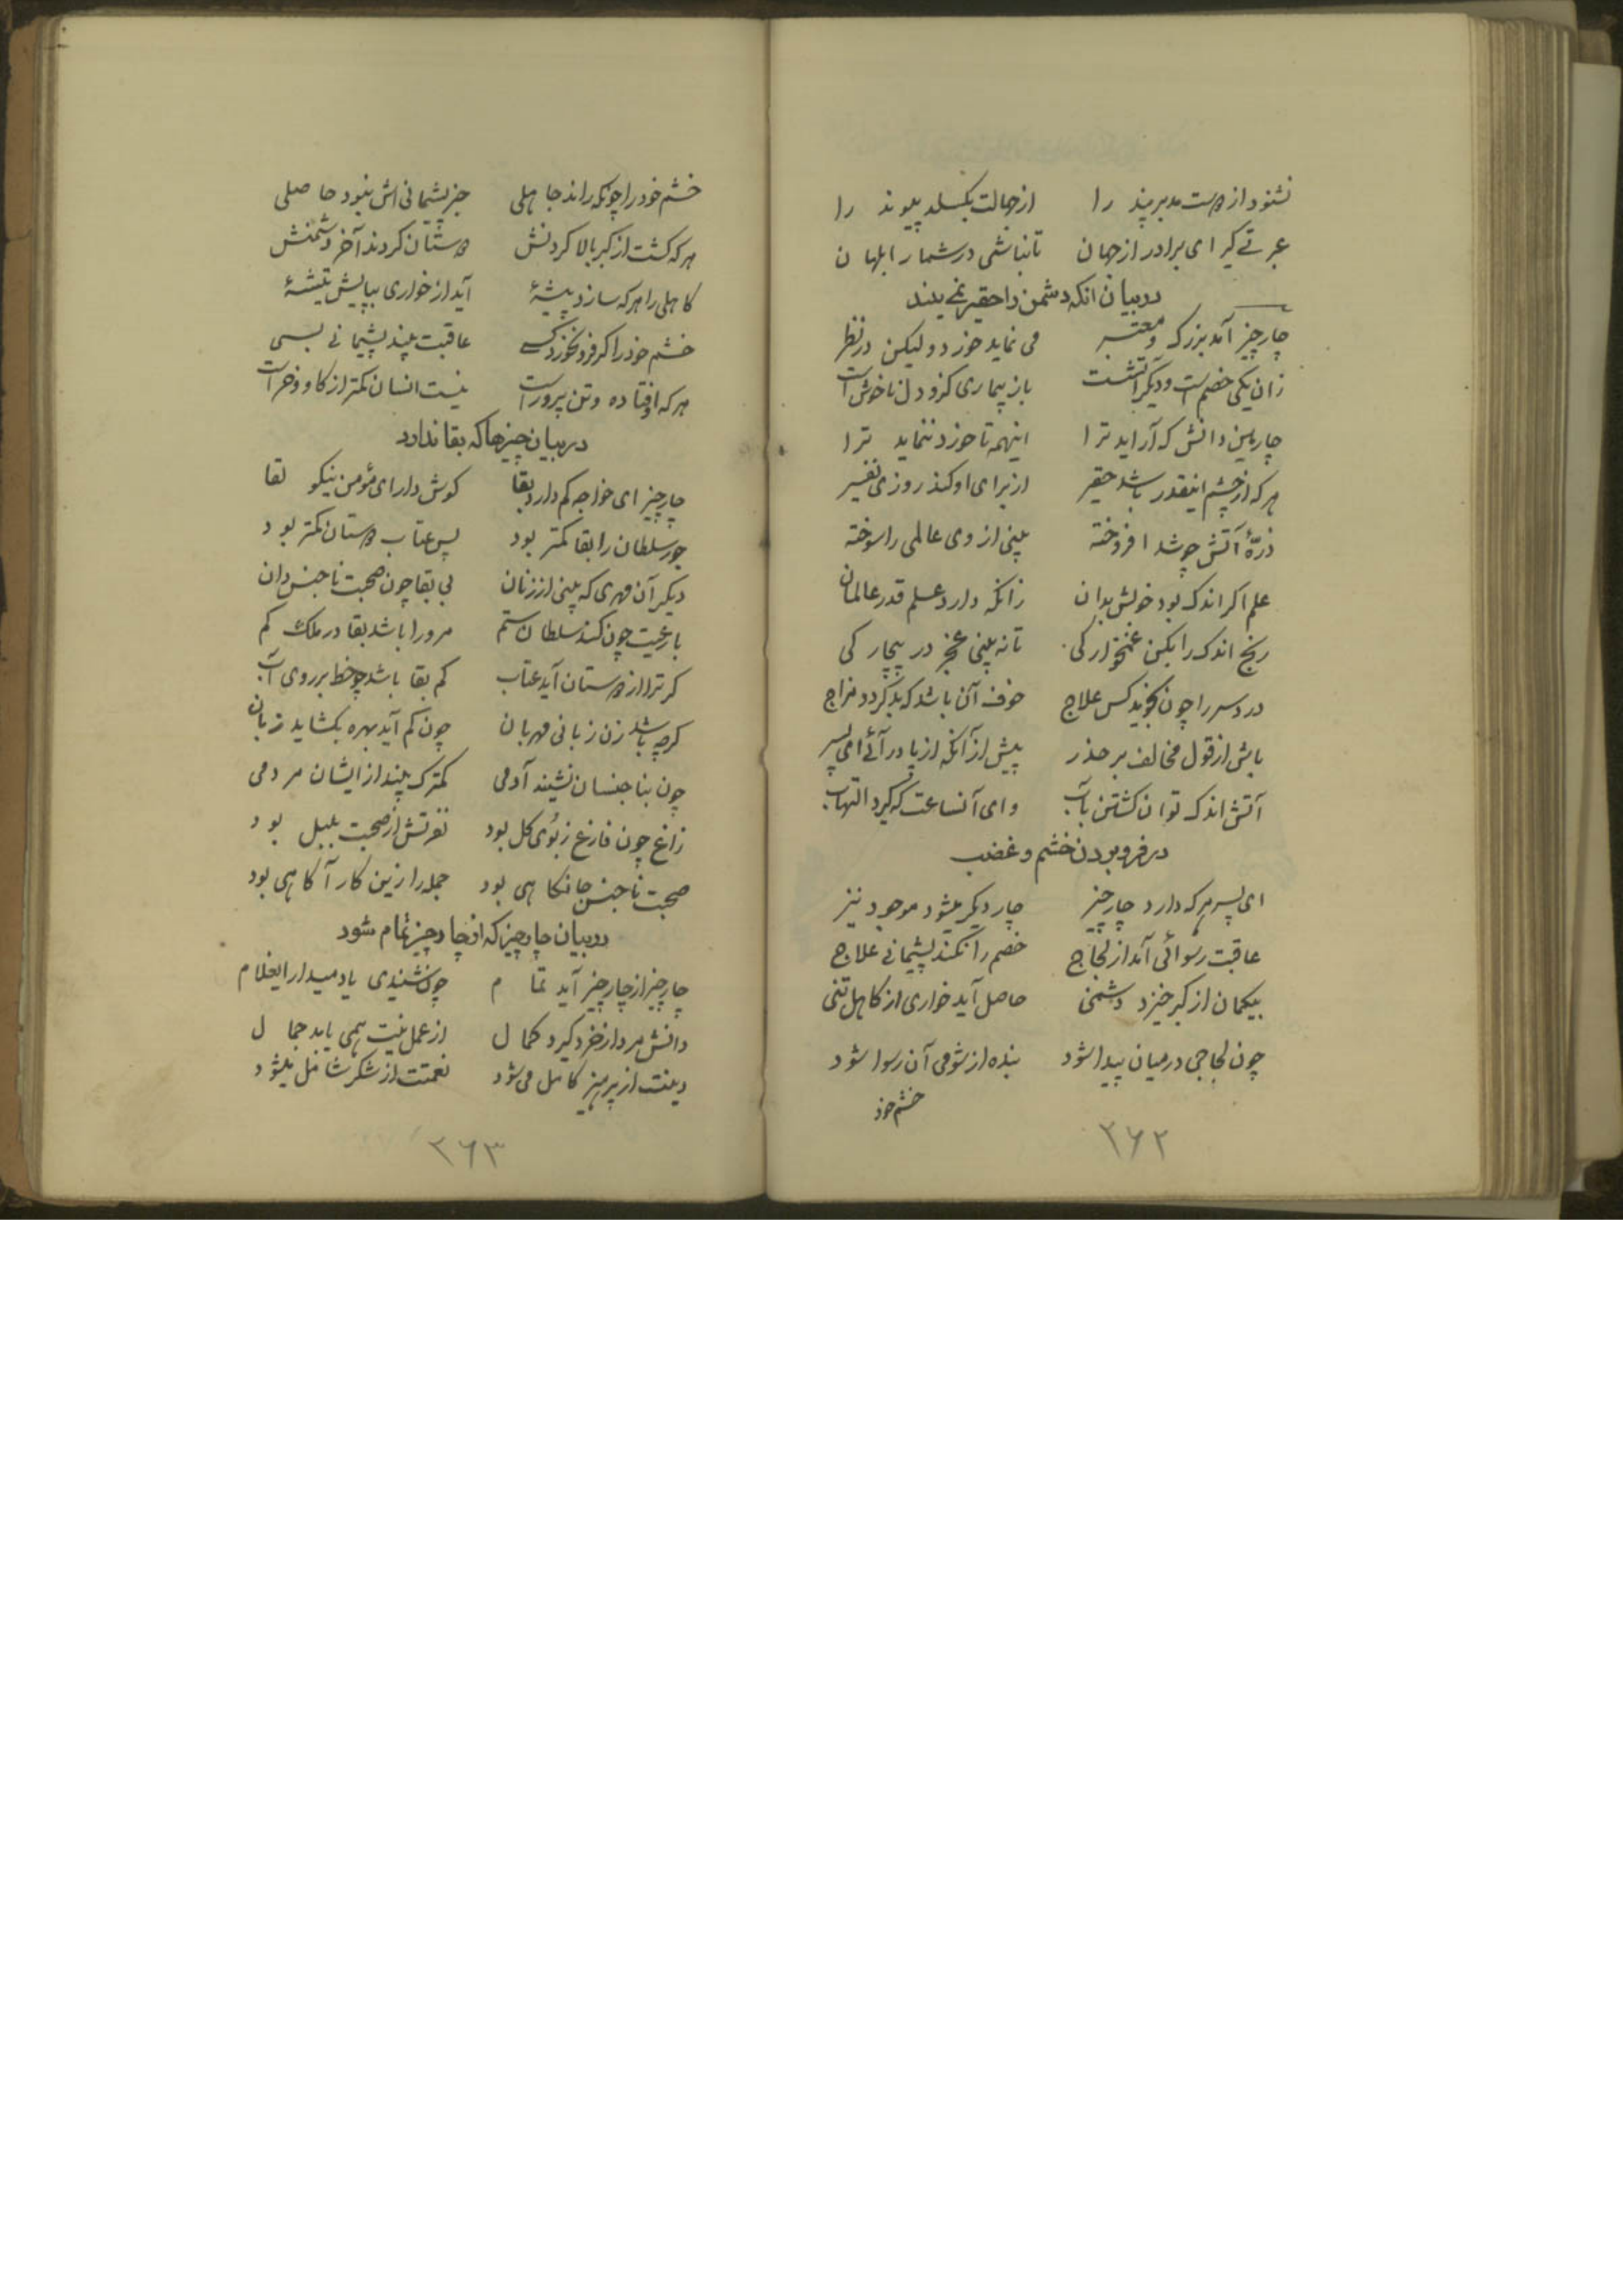 نشنود از دوست مدبر پند را از جهالت بگسلد پیوند را
عبرتے گیر ای برادر از جهان تا نباشی در شمار ابلهان
در بیان انکه دشمن را حقیر نمے بیند
چار چیز آمد بزرگ و معتبر می نماید خورد و لیکن در نظر
زان یکی خصم است و دیگر آتشست باز بیماری کزو دل ناخوش است
چارمین دانش که آراید ترا اینهمه تا خورد ننماید ترا
هر که از چشم اینقدر باشد حقیر از برای او کند روزی نفیر
ذرّهٔ آتش چو شد افروخته بینی از وی عالمی را سوخته
علم اگر اندک بود خوارش مدان زانکه دارد علم قدر عالمان
رنج اندک را بکن غمخوارگی تا نه بینی عجز در بیچارگی
درد سر را چون نجوید کس علاج خوف آن باشد که بد گردد مزاج
باش از قول مخالف بر حذر پیش از آنکه از پا در آئے ای پسر
آتش اندک توان کشتن بآب وای آنساعت که گیرد التهاب
در فرو بردن خشم و غضب
ای پسر هر که دارد چار چیز چار دیگر میشود موجود نیز
عاقبت رسوائی آمد از لجاج خصم را نکند پشیمانے علاج
بیگمان از کبر خیزد دشمنی حاصل آید خواری از کاهل تنی
چون لجاجی در میان پیدا شود بنده از شومی آن رسوا شود
خشم خود
۲۶۲
خشم خود را چونکه راند جاهلی جز پشیمانی اش نبود حاصلی
هر که گشت از کبر بالا گردنش دوستان گردند آخر دشمنش
کاهلی را هر که سازد پیشهٔ آید از خواری بپایش تیشهٔ
خشم خود را گر فرو نخورد کسے عاقبت بیند پشیمانے بسی
هر که او فتاده و تن پرور است نیست انسان کمتر از گاو و خر است
در بیان چیزها که بقا ندارد
چار چیز ای خواجه کم دارد بقا گوش دار ای مؤمن نیکو لقا
جور سلطان را بقا کمتر بود پس عتاب دوستان کمتر بود
دیگر آن مهری که بینی از زنان بی بقا چون صحبت ناجنس دان
با رعیت چون کند سلطان ستم مر ورا باشد بقا در ملک کم
گر ترا از دوستان آید عتاب کم بقا باشد چو خط بر روی آب
گرچه باشد زن زبانی مهربان چون کم آید بهره بگشاید زبان
چون بنا جنسان نشیند آدمی کمترک بیند از ایشان مردمی
زاغ چون فارغ ز بوی گل بود نفرتش از صحبت بلبل بود
صحبت ناجنس جانکاهی بود جمله را زین کار آگاهی بود
در بیان چار چیز که از چار چیز تمام شود
چار چیز از چار چیز آید تمام چون شنیدی یاد میدار ای غلام
دانش مرد از خرد گیرد کمال از عمل نیت همی یابد جمال
دینت از پرهیز کامل می شود نعمتت از شکر شامل میشود
۲۶۳